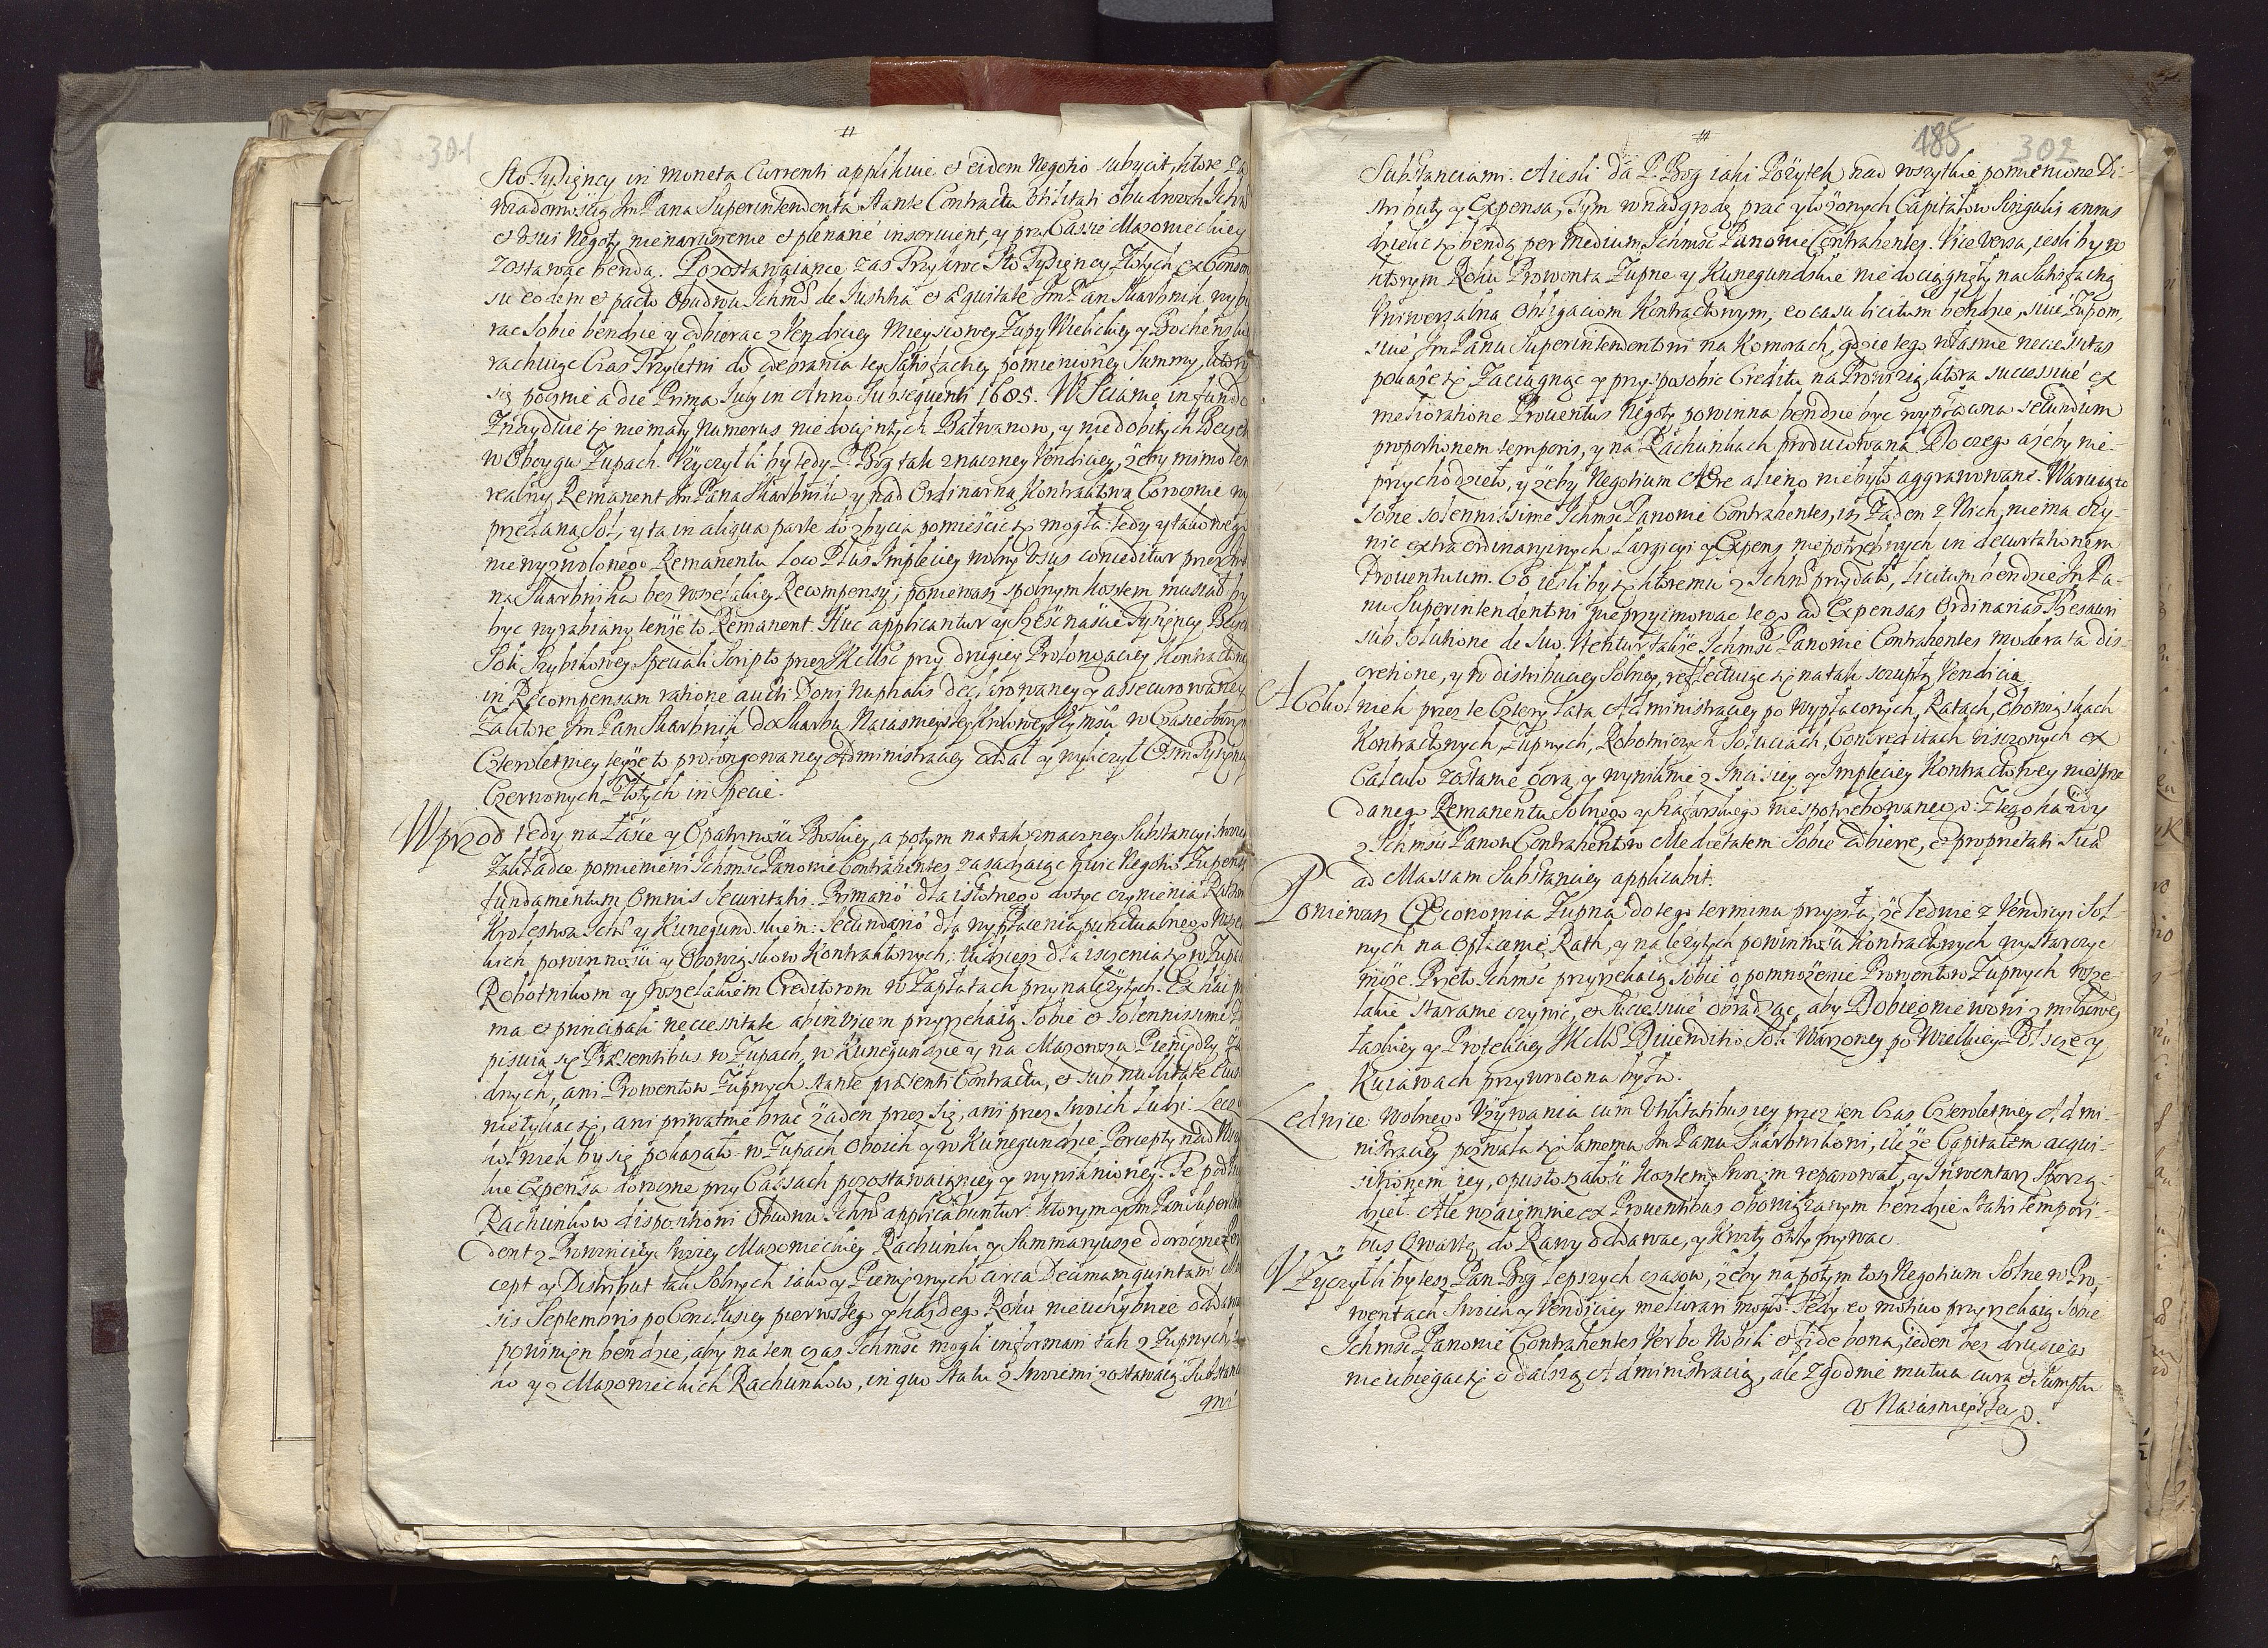 301
Sto Tysięncy in moneta Currenti applikuie et eidem Negotio subycit, ktore za
wiadomością Jm Pana Superintendenta stante Contractu Utilitati obudwoch Ichm
et usui Negoty nienaruszenie et plenarie inseruient, y przy Cassie Mazowieckiey
zostawac bendą. Pozostawaiące zas Trzykroc Sto Tysięncy Złotych ex Consen
su eodem et pacto Obudwu Ichmć de Iustitia et aequitate Jm Pan Skarbnik wybi
rac sobie bendzie y odbierac z Vendiciey Mieyscowey Zupy Wielickiey y Bochenskiey
rachuiąc Czas Trzyletni do odebrania tey Satisfactiey pomienioney Summy, ktory
się pocznie a die Prima July in Anno Subsequenti 1685. W Scianie in fundo
Znayduie się niemały Numerus niedoiętych Bałwanow, y niedobitych Beczek
w Oboygu Zupach. Uzyczył li by tedy P. Bog tak znaczney Vendiciey, żeby mimo ten
realny Remanent Jm Pana Skarbnika y nad Ordinarną Kontraktową Corocznie wy
przedana Sol, y ta in aliqua parte do zbycia pomieścic się mogła: tedy y takowego
niewyzwolonego Remanentu loco Plus Impleciey wolny Usus conceditur przez Jm
na Skarbnika bez wszelakiey Recompensy, poniewasz spolnym kosztem musiał by
byc wyrabiany tenże to Remanent. Huc applicantur y Szesnaście Tysięncy Beczek
Soli Szybikowey Speciali Scripto przez JKMść przy drugiey Prolongaciey Kontraktowey
in Recompensam ratione aucti Doni Nuptialis deklarowaney y assecurowaney
Za ktore Jm Pan Skarbnik do Skarbu Naiasnieyszey Krolowey Jeymści w Czasie
Czteroletniey teyże to prolongowaney Administraciey oddał y wyliczył Osm Tysięncy
Czerwonych Złotych in Specie.
Wprzod tedy na Łasce y Opatrznosci Boskiey, a potym na tak znaczney Substancyi
Zakładce pomienieni Ichmść Panowie Contrahentes zasadzaiąc huic Negotio Zupnemu
fundamentum Omnis Securitatis. Primario dla istotnego dosyc czynienia Ratom
Krolestwa Ichm y Kunegundskim: Secundario dla wypłacenia punctualnego wszel
kich powinnosci y Obowiąskow Kontraktowych: tudziesz dla iszczenia się w Zupach
Robotnikom y wszelakim Creditorom w Zapłatach przynależytych. Ex hac pri
ma et principali necessitate abinvicem przyrzekaią sobie et solennissime
pisuią się Praesentibus w Zupach, w Kunegundzie y na Mazowszu Pieniędzy ża
dnych, ani Prowentow Zupnych stante praesenti Contractu, et sub nullitate Eius
nietykac się, ani privatnie brac żaden przez się, ani przez Swoich Ludzi: Lecz
kolwiek by się pokazało w Zupach oboich y w Kunegundzie Percepty nad
kie Expensa doroczne przy Cassach pozostawaiącey y wynikioney. Te pod
Rachunkow dispozitioni Obudwu Ichm applicabuntur. Ktorym y Jm Pan Superinten
dent z Prowinciey swoiey Mazowieckiey Rachunki y Summaryusze doroczne Per
cept y Distribut tak Solnych iako y Pieniężnych circa Decimamquintam Men
sis Septembris po Conclusiey pierwszego y każdego Roku nieuchybnie oddawac
powinien bendzie, aby na ten czas Ichmść mogli informari tak z Zupnych, ia
ko y z Mazowieckich Rachunkow, in quo statu z Swoiemi zostawaią Substan
mi
185 302
Substanciami. A iesli da P. Bog iaki Pożytek nad wszytkie pomienione Di-
stributy y Expensa, Tym w nadgrodę prac y łożonych Capitałow Singulis annis
dzielic się bendą per medium Ichmść Panowie Contrahentes. Vice Versa, iesli by w
ktorym Roku Prowenta Zupne y Kunegundskie nie dociągnęły na Satisfactią
Uniwersalną Obligaciom Kontraktowym; eo casu licitum bendzie, siue Zupom,
siue Jm Panu Superintendentowi na Komorach, gdzie tego własnie necessitas
pokaże się Zaciągnąc y przysposobic Creditu na Prowizią, ktora successiue ex
melioratione Prouentus Negoty powinna bendzie byc wypłacana secundum
proportionem temporis, y na Rachunkach producowana. Do czego ażeby nie-
przychodziło, y żeby Negotium Aere alieno niebyło aggrawowane. Waruią to
sobie solennissime Ichmść Panowie Contrahentes, iż Żaden z Nich, niema czy-
nic extraordinaryinych Largicyi y Expens niepotrzebnych in decurtationem
Prouentuum. Co iesliby się ktoremu z Ichm przydało, licitum bendzie Jm Pa-
nu Superintendentowi nieprzyimowac tego ad Expensas Ordinarias Thesauri
sub solutione de suo. Utentur także Ichmść Panowie Contrahentes moderata dis-
cretione, y w distribuciey Solney, reflectuiąc się na tak szczupłą Vendicią.
A Cokolwiek przez te Cztery Lata Administraciey po wypłaconych Ratach, Obowiąskach
Kontraktowych, Zupnych, Robotniczych Soluciach, Concreditach iszczonych ex
Calculo zostanie gorą, y wyniknie z Incisiey y Impleciey Kontraktowey nieprze
danego Remanentu Solnego y Szafarskiego niespotrzebowanego: Z tego każdy
z Ichmści Panow Contrahentow Medietatem Sobie odbierze, et proprietati Suae
ad Massam Substanciey applicabit.
Poniewasz Oeconomia Zupna do tego terminu przyszła, że ledwie z Vendicyi Sol-
nych na Opłacenie Rath, y należytych powinnosci Kontraktowych wystarczyc
może. Przeto Ichmść przyrzekaią sobie o pomnożenie Prowentow Zupnych wsze-
lakie staranie czynic, et successiue obradzac, aby Dobiegniewoni z miłosciwey
łaskiey y Protekciey JKMści Divenditio Soli Warzoney po Wielkiey Polszcze y
Kuiawach przywrocona była.
Lednice Wolnego Używania cum Utilitatibus iey przez ten Czas Czteroletniey Admi-
nistraciey pozwala się samemu Jm Panu Skarbnikowi, ile że Capitałem acqui-
sitionem iey, opustoszałość Kosztem Swoim reparował, y Inwentarz Sporzą-
dził. Ale wzaiemnie ex Prouentibus obowiązanym bendzie statis tempori-
bus Kwartę do Rawy oddawac, y Kwity otrzymywac.
Użyczył li by tesz Pan Bog lepszych czasow, żeby na potym tosz Negotium Solne w Pro-
wentach Swoich y Vendiciey meliorari mogło: Tedy eo motivo przyrzekaią sobie
Ichmść Panowie Contrahentes Verbo Nobili et fide bona, ieden bez drugiego
nie ubiegac się o dalszą Administracią, ale zgodnie mutua cura et Sumptu
u Naiasnieyszego.